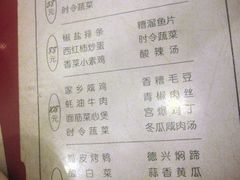 时令蔬菜
椒盐排条 糟溜鱼片
西红柿炒蛋 时令蔬菜
香菜小素鸡 酸辣汤
家乡咸鸡 香糟毛豆
蚝油牛肉 青椒肉丝
面筋菜心煲 宫爆肉丁
时令蔬菜 冬瓜咸肉汤
皮烤鸭 德兴焖蹄
白菜 蒜香黄瓜